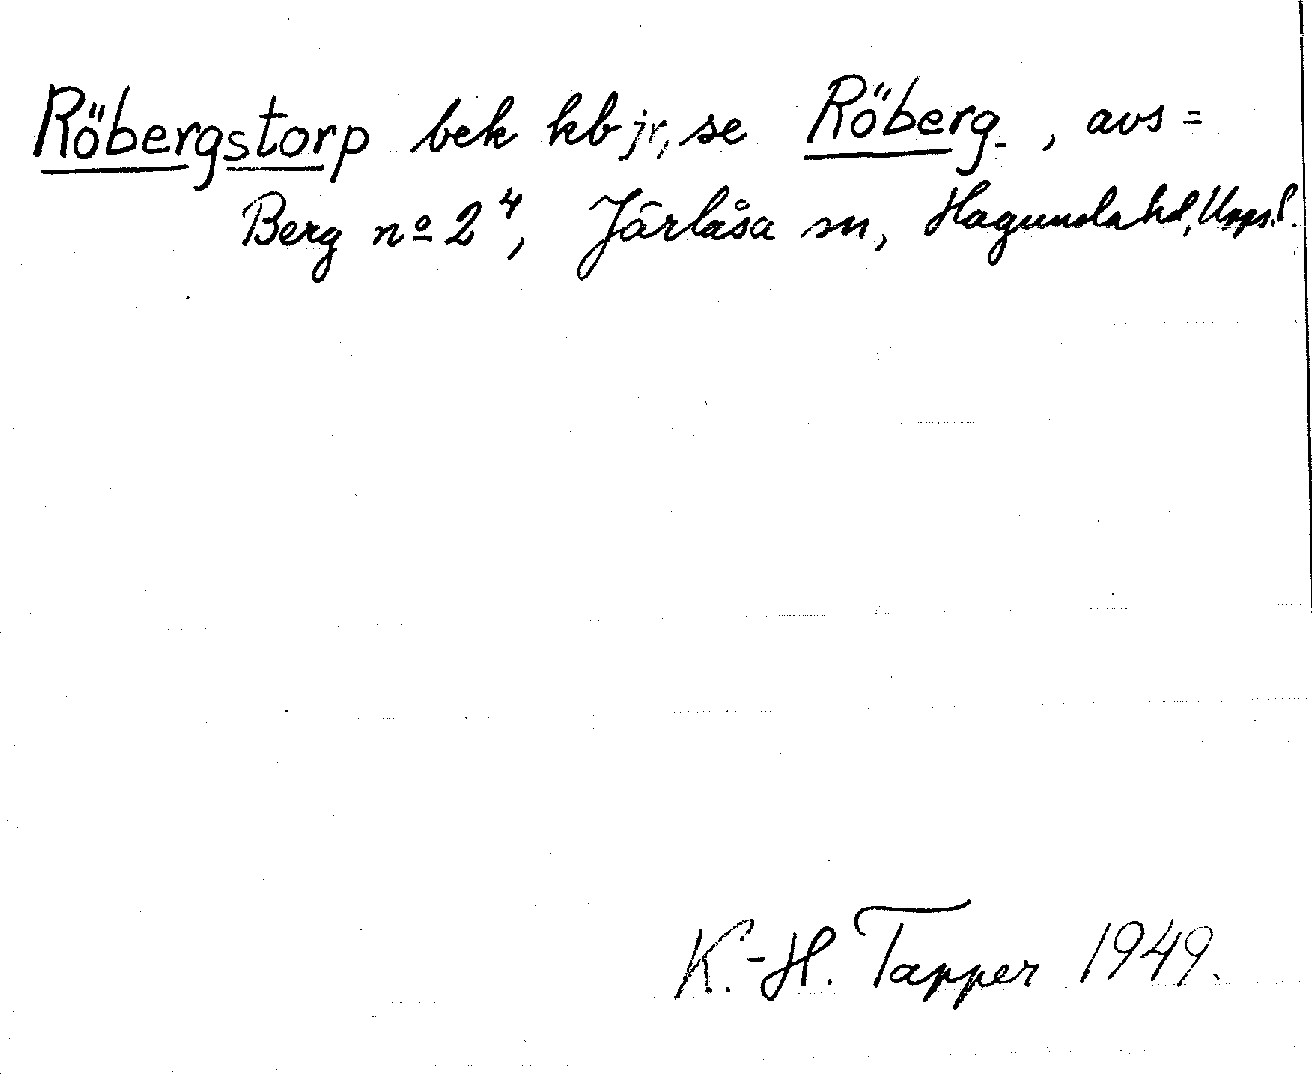 Röbergstorp bek kb jr, se Röberg , avs =
Berg nº 2⁴, Järlåsa sn, Hagunda hd, Upps. l.
K.-H. Tapper 1949.